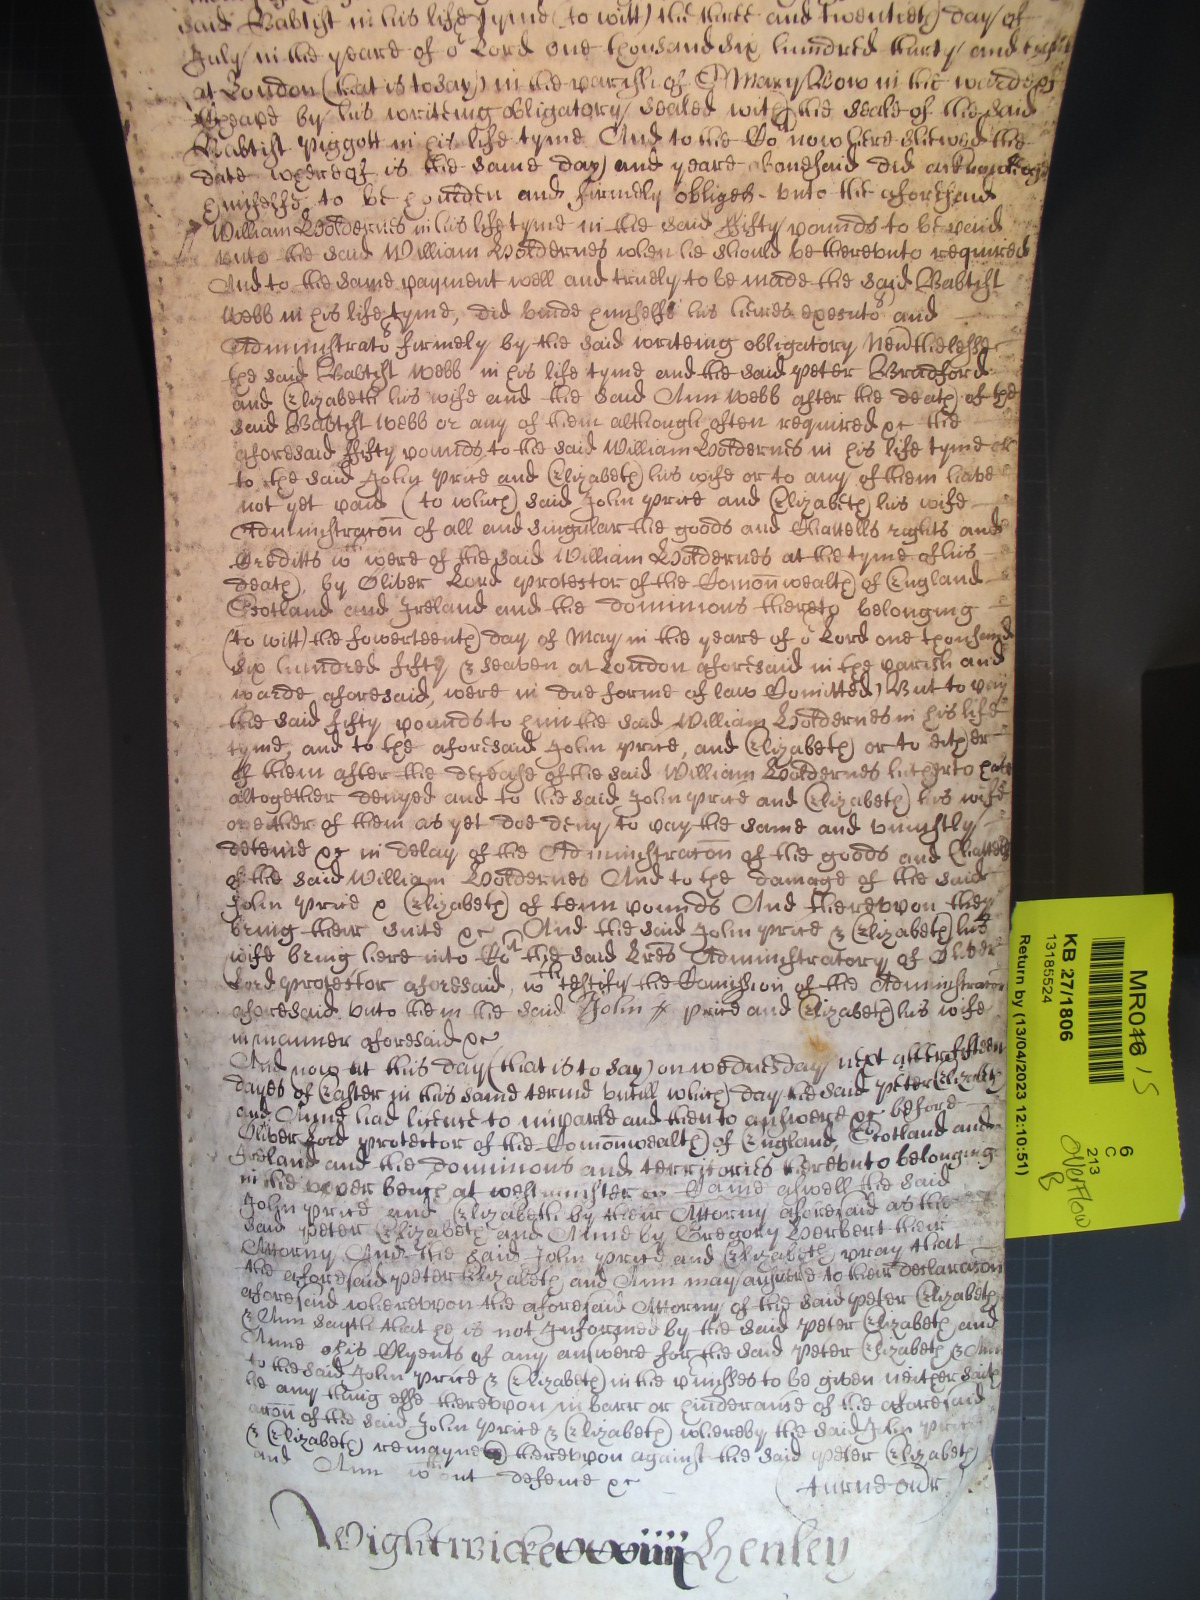 said Babtist in his life tyme (to witt) the three and twentieth day of
July in the yeare of or Lord one thousand six hundred thirty and
at London (that is to say) in the parish of Mary Bow in the warde of
Cheape by his writeing obligatory sealed with the seale of the said
Babtist Piggott in his life tyme And to the Cot now here shewed the
date whereof is the same day and yeare aforesaid did acknowledge
himselfe to be houlden and firmely obliged unto the aforesaid
William Holdernes in his life tyme in the said ffifty pounds to be paid
unto the said William Holdernes when he should be thereunto required
And to the same payment well and truely to be made the said Babtist
Webb in his life tyme, did binde himselfe his heires executo and
Administrato firmely by the said writeing obligatory Neutheless
the said Babtist Webb in his life tyme and the said Peter Bradford
and Elizabeth his wife and the said Ann Webb after the death of the
said Babtist Webb or any of them although often required &c the
aforesaid ffifty pounds to the said William Holdernes in his life tyme or
to the said John Price and Elizabeth his wife or to any of them have
not yet paid (to which said John Price and Elizabeth his wife
Administracon of all and singular the goods and Chattells rights and
Creditts wch were of the said William Holdernes at the tyme of his
death, by Oliver Lord Protector of the Comonwealth of England
Scotland and Ireland and the dominions thereto belonging
(to witt) the fowerteenth day of May in the yeare of or Lord one thousand
six hundred fifty & seaven at London aforesaid in the parish and
warde aforesaid, were in due forme of law Comitted) But to pay
the said fifty pounds to him the said William Holdernes in his life
tyme, and to the aforesaid John Price, and Elizabeth or to either
of them after the decease of the said William Holdernes hitherto have
altogether denyed and to the said John Price and Elizabeth his wife
or either of them as yet doe deny to pay the same and uniustly
deteine &c in delay of the Administracon of the goods and Chattells
of the said William Holdernes And to the damage of the said
John Price & Elizabeth of tenn pounds And thereupon they
bring their suite &c And the said John Price & Elizabeth his
wife bring here into Cot the said Lres Administratory of Oliver
Lord Protector aforesaid, wch testify the Comission of the Administracon
aforesaid unto them the said John Price and Elizabeth his wife
in manner aforesaid &c
And now at this day (that is to say) on wednesday next after fifteen
dayes of Easter in this same terme untill which day the said Peter Elizabeth
and Anne had licence to imparle and then to answere &c before
Oliver Lord Protector of the Comonwealth of England, Scotland and
Ireland and the dominions and territories thereunto belonging
in the upper bench at westminster Came aswell the said
John Price and Elizabeth by their Attorny aforesaid as the
said Peter Elizabeth and Anne by Gregory Herbert their
Attorny And the said John Price and Elizabeth pray that
the aforesaid Peter Elizabeth and Ann may answere to their declaracon
aforesaid whereupon the aforesaid Attorny of the said Peter Elizabeth
& Ann sayth that he is not Informed by the said Peter Elizabeth and
Anne his Clyents of any answere for the said Peter Elizabeth & Ann
to the said John Price & Elizabeth in the p'misses to be given neither saith
he any thing else thereupon in barr or hinderance of the aforesaid
accon of the said John Price & Elizabeth whereby the said John Price
& Elizabeth remayne thereupon against the said Peter Elizabeth
and Ann wthout defence &c
turne our
Wightwicke Henley
MR046 15
KB 27/1806
13185524
Return by (13/04/2023 12:10:51)
6
C
213
Overflow
B